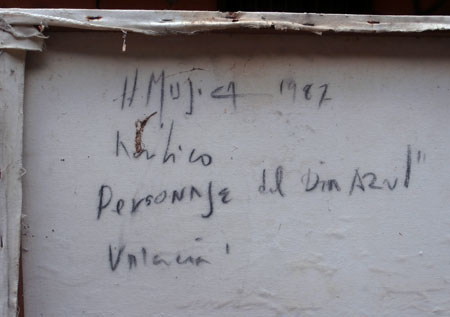 H Mujica 1987
Personaje del Dia Azul"
Valencia